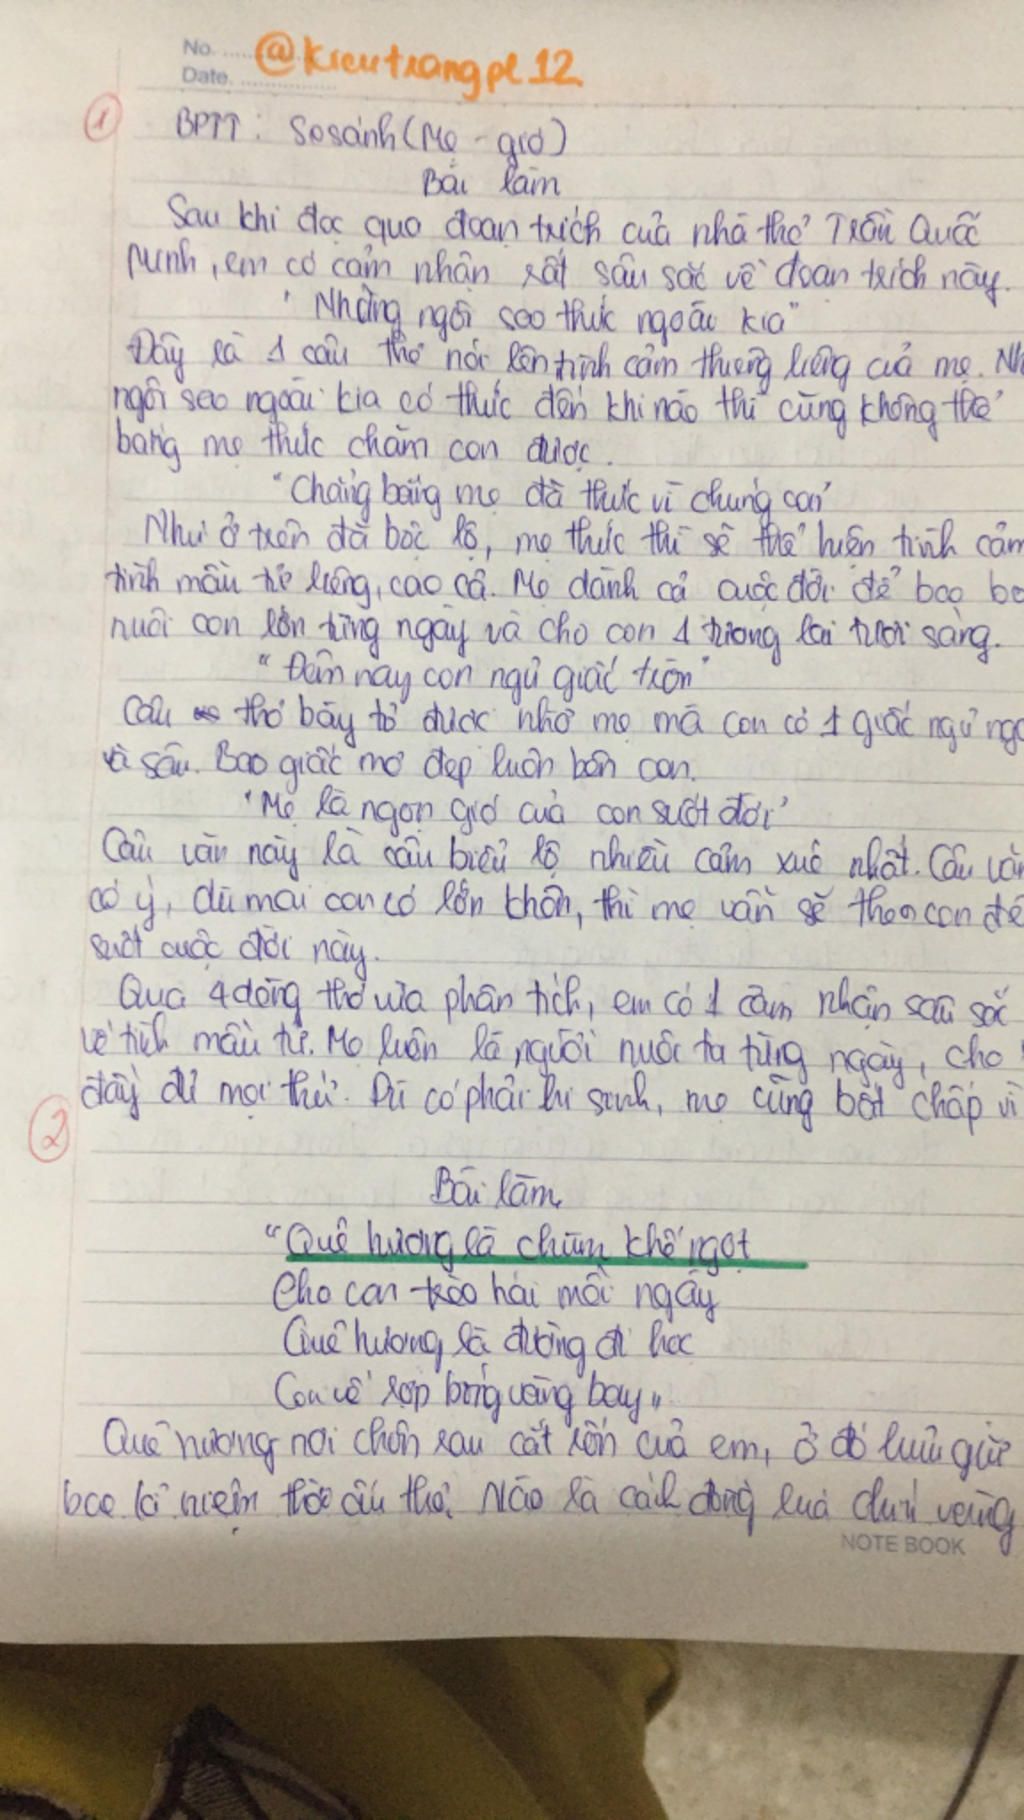 No. ......
@kieutrangpl12
Date. ..............
1
BPTT: So sánh (Mẹ - gió)
Bài làm
Sau khi đọc qua đoạn trích của nhà thơ Trần Quốc
Minh, em có cảm nhận rất sâu sắc về đoạn trích này.
"Những ngôi sao thức ngoài kia"
Đây là 1 câu thơ nói lên tình cảm thương liêng của mẹ. Nh
ngôi sao ngoài kia có thức đến khi nào thì cũng không thể
bằng mẹ thức chăm con được.
"Chẳng bằng mẹ đã thức vì chúng con"
Như ở trên đã bộc lộ, mẹ thức thì sẽ thể hiện tình cảm
tình mẫu tử liêng, cao cả. Mẹ dành cả cuộc đời để bao bo
nuôi con lớn từng ngày và cho con 1 tương lai tươi sáng.
"Đêm nay con ngủ giấc tròn"
Câu thơ bày tỏ được nhờ mẹ mà con có 1 giấc ngủ ngo
và sâu. Bao giấc mơ đẹp luôn bên con.
"Mẹ là ngọn gió của con suốt đời"
Câu văn này là câu biểu lộ nhiều cảm xúc nhất. Câu văn
có ý, dù mai con có lớn khôn, thì mẹ vẫn sẽ theo con đế
suốt cuộc đời này.
Qua 4 dòng thơ vừa phân tích, em có 1 cảm nhận sâu sắc
về tình mẫu tử. Mẹ luôn là người nuôi ta từng ngày, cho
đầy đủ mọi thứ. Dù có phải hi sinh, mẹ cũng bất chấp vì
2
Bài làm
"Quê hương là chùm khế ngọt
Cho con trèo hái mỗi ngày
Quê hương là đường đi học
Con về rợp bướm vàng bay"
Quê hương nơi chôn rau cắt rốn của em, ở đó lưu giữ
bao kỉ niệm thời ấu thơ. Nào là cánh đồng lúa chín vàng
NOTE BOOK